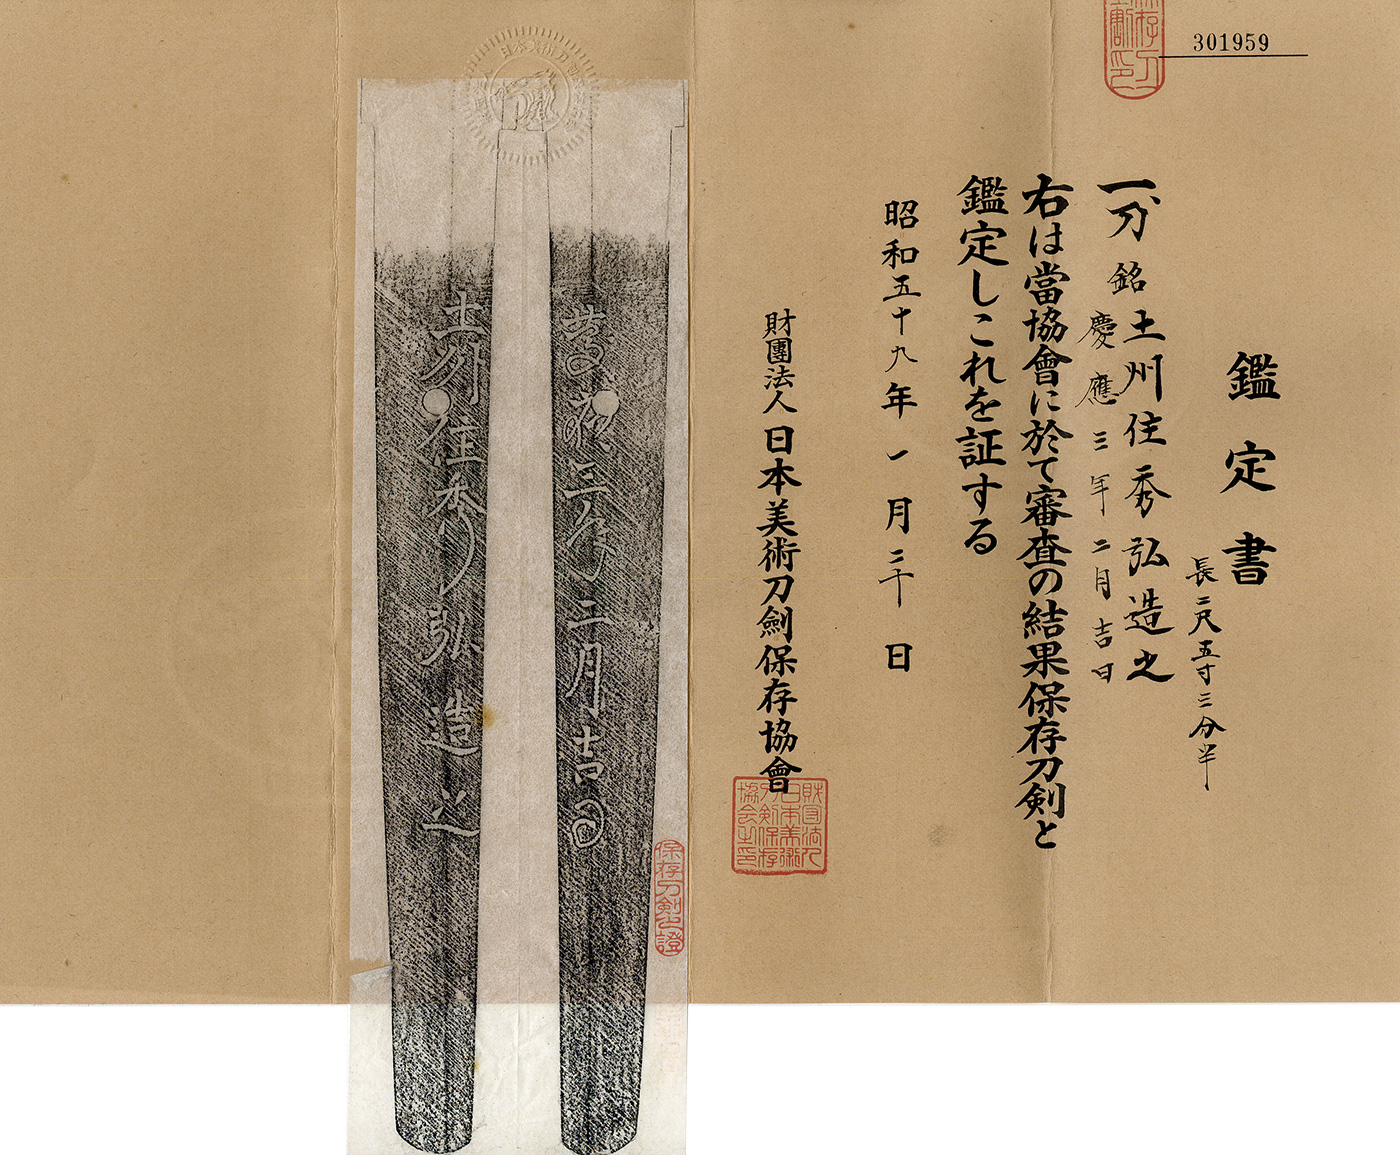 301959
鑑定書
長二尺五寸三分半
一、刀 銘 土州住秀弘造之
慶應三年二月吉日
右は當協會に於て審査の結果保存刀剣と
鑑定しこれを証する
昭和五十九年一月二十日
財團法人日本美術刀劍保存協會
財団法人
日本美術
刀剣保存
協会之印
慶應三年二月吉日
土州住秀弘造之
保存刀剣證